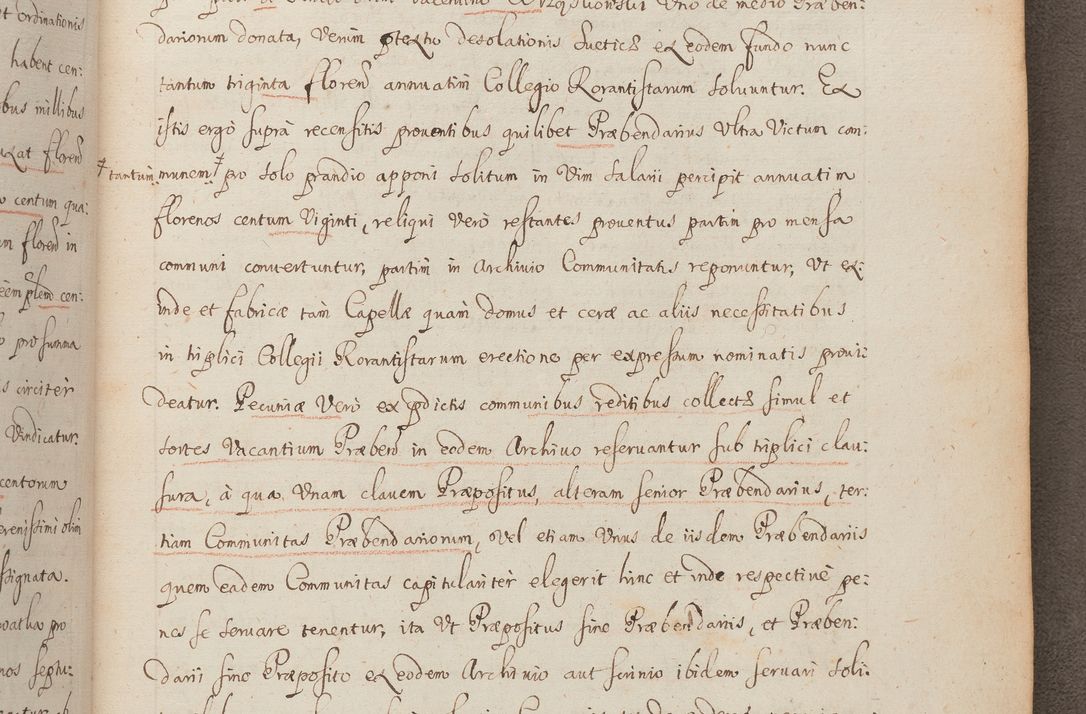 t ordinationis
habent cen:
bus millibus
florend
centum qua:
m florend in
cen:
pro summa
s circiter
Vindicatur.
centorum
erenissimi olim
ssignata.
pro
nos septu:
Uno de medio Præben:
dariorum donata, Verùm ptextu desolationis Sueticæ ex eodem fundo nunc
tantum triginta florend annuatim Collegio Rorantistarum soluuntur. Ex
istis ergò suprà recensitis prouentibus quilibet Præbendarius Ultra Victum com:
‡ tantùm munem ‡ pro solo prandio apponi solitum in Vim salarii percipit annuatim
florenos centum Viginti, reliqui Verò restantes prouentus partim pro mensa
communi conuertuntur, partim in Archiuio Communitatis reponuntur, Vt ex:
inde et fabricæ tàm Capellæ quàm domus et ceræ ac aliis necessitatibus
in triplici Collegii Rorantistarum erectione per expressum nominatis proui:
deatur. Pecuniæ Verò ex pdictis communibus reditibus collectæ simul et
sortes Vacantium Præbend in eodem Archiuo reseruantur sub triplici clau:
sura, à qua Unam clauem Præpositus, alteram senior Præbendarius, ter:
tiam Communitas Præbendariorum, Vel etiam Unus de iisdem Præbendariis
quem eadem Communitas capitulariter elegerit hinc et inde respectiuè pe:
nes se seruare tenentur, ita Vt Præpositus sine Præbendariis, et Præben:
darii sine Præposito ex eodem Archiuio aut scrinio ibidem seruari soli: